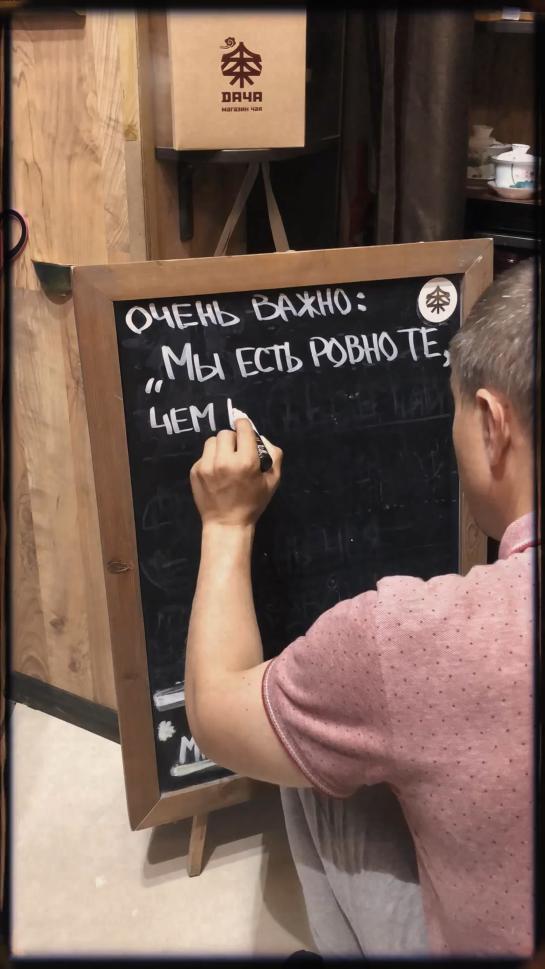 DАЧА
МАГАЗИН ЧАЯ
ОЧЕНЬ ВАЖНО:
„МЫ ЕСТЬ РОВНО ТЕ,
ЧЕМ